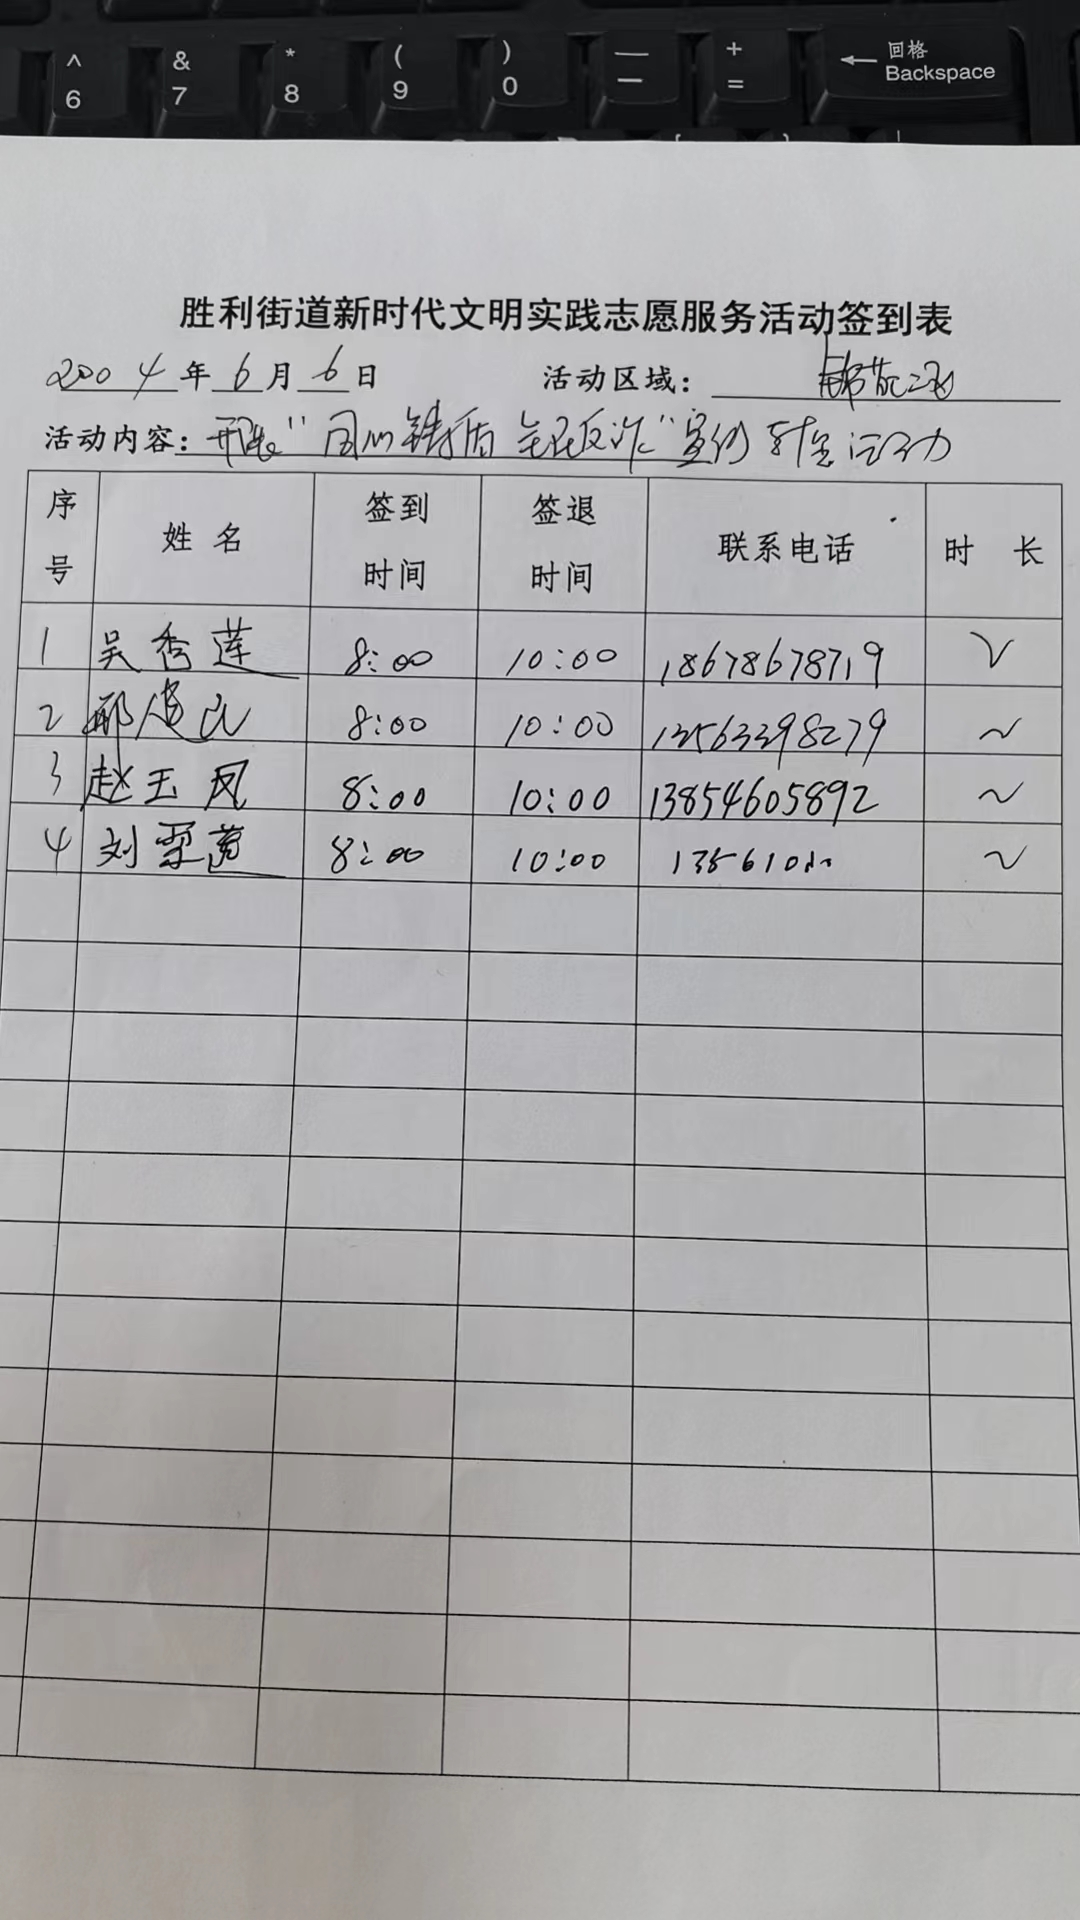 ^ & * ( ) — + 回格
6 7 8 9 0 - = ← Backspace
胜利街道新时代文明实践志愿服务活动签到表
2004年6月6日 活动区域:
活动内容:开展"同心铸盾 全民反诈"宣传 活动
序号 姓名 签到时间 签退时间 联系电话 时长
1 吴秀莲 8:00 10:00 18678678719 2
2 8:00 10:00 13563398279 ~
3 赵玉凤 8:00 10:00 13854605892 ~
4 刘翠莲 8:00 10:00 ~